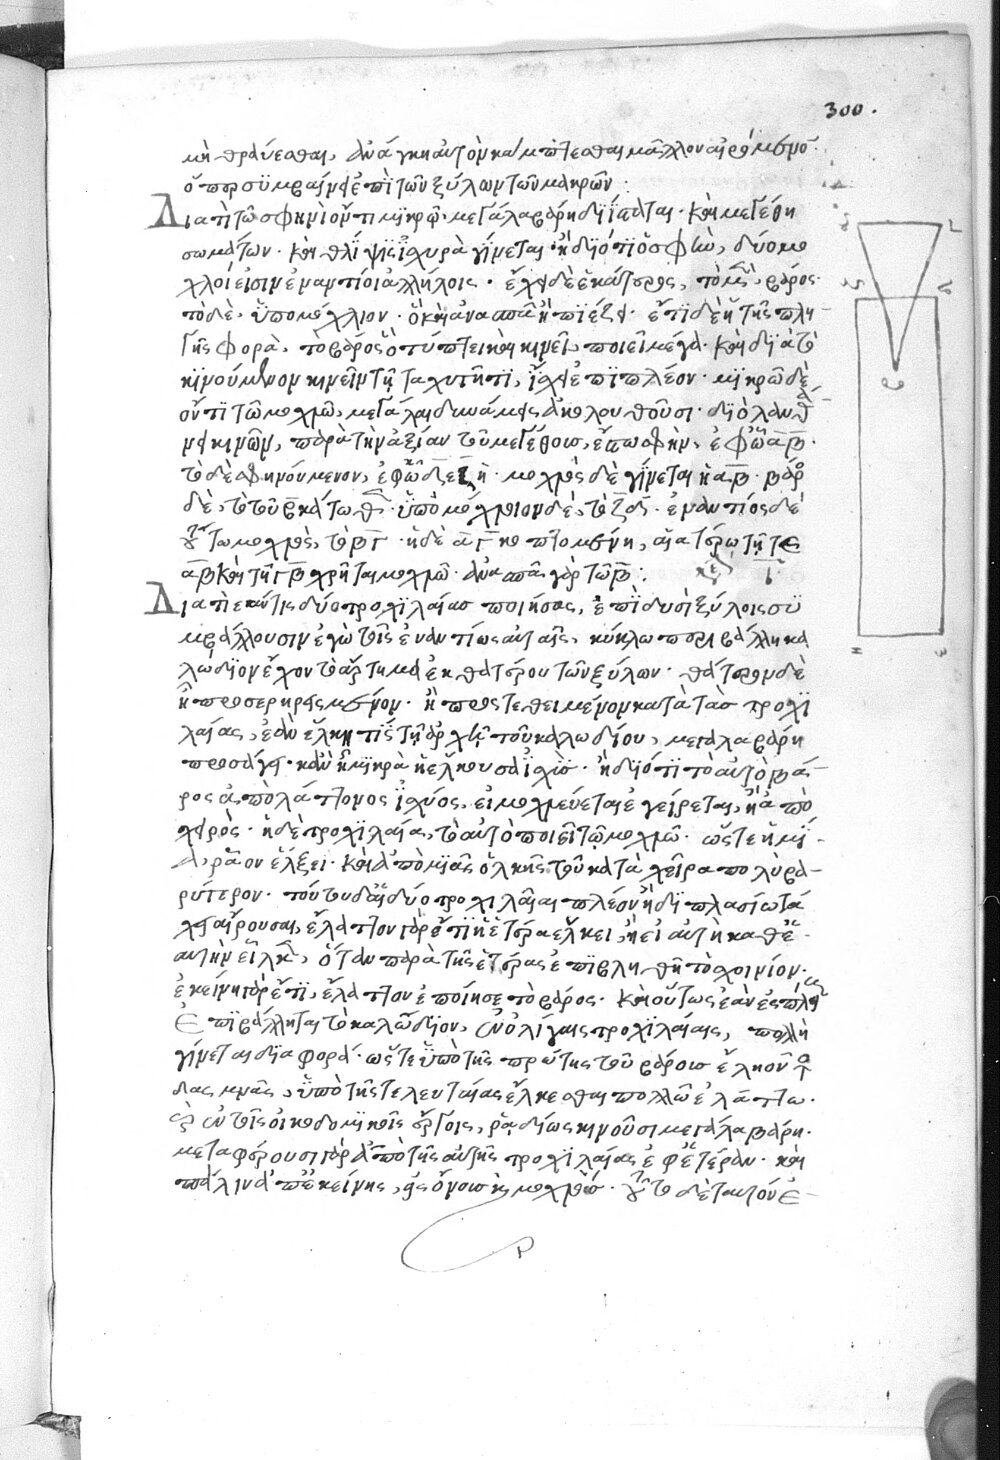 300.
μὴ θραύεσθαι, ἀνάγκη αὐτὸ κάμπτεσθαι μᾶλλον αἰρόμενον·
ὅπερ συμβαίνει ἐπὶ τῶν ξύλων τῶν μακρῶν·
Διατὶ τῷ σφηνὶ ὄντι μικρῷ μεγάλα βάρη διΐσταται· καὶ μεγέθη
σωμάτων· καὶ θλίψις ἰσχυρὰ γίνεται· ἢ διότι ὁ σφὴν, δύο μο
χλοί εἰσιν ἐναντίοι ἀλλήλοις· ἔχει δὲ ἑκάτερος, τὸ μὲν, βάρος·
τὸ δὲ, ὑπομόχλιον· ὃ καὶ ἀνασπᾷ ἢ πιέζει· ἔτι δὲ ἡ τῆς πλη
γῆς φορὰ, τὸ βάρος ὃ τύπτει καὶ κινεῖ, ποιεῖ μέγα· καὶ διὰ τὸ
κινούμενον κινεῖν τῇ ταχυτῆτι, ἰσχύει ἐπιπλέον· μικρῷ δὲ
ὄντι τῷ μοχλῷ, μεγάλαι δυνάμεις ἀκολουθοῦσι· διὸ λανθά
νει κινῶν, παρὰ τὴν ἀξίαν τοῦ μεγέθους, ἔστω σφὴν, ἐφ ᾧ αβγ·
τὸ δὲ σφηνούμενον, ἐφ ᾧ δεζη· μοχλὸς δὲ γίνεται ἡ αβ· βάρος
δὲ, τὸ τοῦ β κάτωθεν· ὑπομόχλιον δὲ, τὸ ζδ· ἐναντίος δὲ
τούτῳ μοχλὸς, τὸ βγ· ἡ δὲ αγ κοπτομένη, ἑκατέρᾳ τῇ τε
αβ καὶ τῇ γβ χρῆται μοχλῷ· ἀνασπᾷ γὰρ τῷ β·
Διατὶ ἐάν τις δύο τροχιλαίας ποιήσας, ἐπὶ δυσὶ ξύλοις συ
μβάλλουσιν ἑαυτοῖς ἐναντίως αὐταῖς, κύκλῳ περιβάλλῃ κα
λώδιον ἔχον τὸ ἄρτημα ἐκ θατέρου τῶν ξύλων· θάτερον δὲ
ἢ προσερηρεισμένον· ἢ προστεθειμένον κατὰ τὰς τροχι
λαίας, ἐὰν ἕλκῃ τις τῇ ἀρχῇ τοῦ καλωδίου, μεγάλα βάρη
προσάγει· κἂν ᾖ μικρὰ ἡ ἕλκουσα ἰσχὺς· ἢ διότι τὸ αὐτὸ βά
ρος ἀπὸ ἐλάττονος ἰσχύος, εἰ μοχλεύεται ἐγείρεται, ἢ ἀπὸ
χειρὸς· ἡ δὲ τροχιλαία, τὸ αὐτὸ ποιεῖ τῷ μοχλῷ· ὥστε ἡ μία
ῥᾷον ἕλξει· καὶ ἀπὸ μιᾶς ὁλκῆς τοῦ κατὰ χεῖρα πολὺ βα
ρύτερον· τοῦτο δ αἱ δύο τροχιλαῖαι πλέον ἢ διπλασίῳ τά
χει αἴρουσαι, ἔλαττον γὰρ ἔτι ἡ ἑτέρα ἕλκει, ἢ εἰ αὐτὴ καθ ἑ
αυτὴν εἷλκεν, ὅταν παρὰ τῆς ἑτέρας ἐπιβληθῇ τὸ σχοινίον·
ἐκείνη γὰρ ἔτι, ἔλαττον ἐποίησε τὸ βάρος· καὶ οὕτως ἐὰν εἰς πλείους
ἐπιβάλληται τὸ καλώδιον, ἐν ὀλίγαις τροχιλαίαις, πολλὴ
γίνεται διαφορά· ὥστε ὑπὸ τῆς πρώτης τοῦ βάρους ἕλκοντος
δας μνᾶς, ὑπὸ τῆς τελευταίας ἕλκεσθαι πολλῷ ἐλάττω·
καὶ ἐν τοῖς οἰκοδομικοῖς ἔργοις, ῥᾳδίως κινοῦσι μεγάλα βάρη·
μεταφέρουσι γὰρ ἀπὸ τῆς αὐτῆς τροχιλαίας ἐφ ἑτέραν· καὶ
πάλιν ἀπ ἐκείνης, εἰς ὄνους καὶ μοχλούς· τοῦτο δὲ ταυτόν ἐ